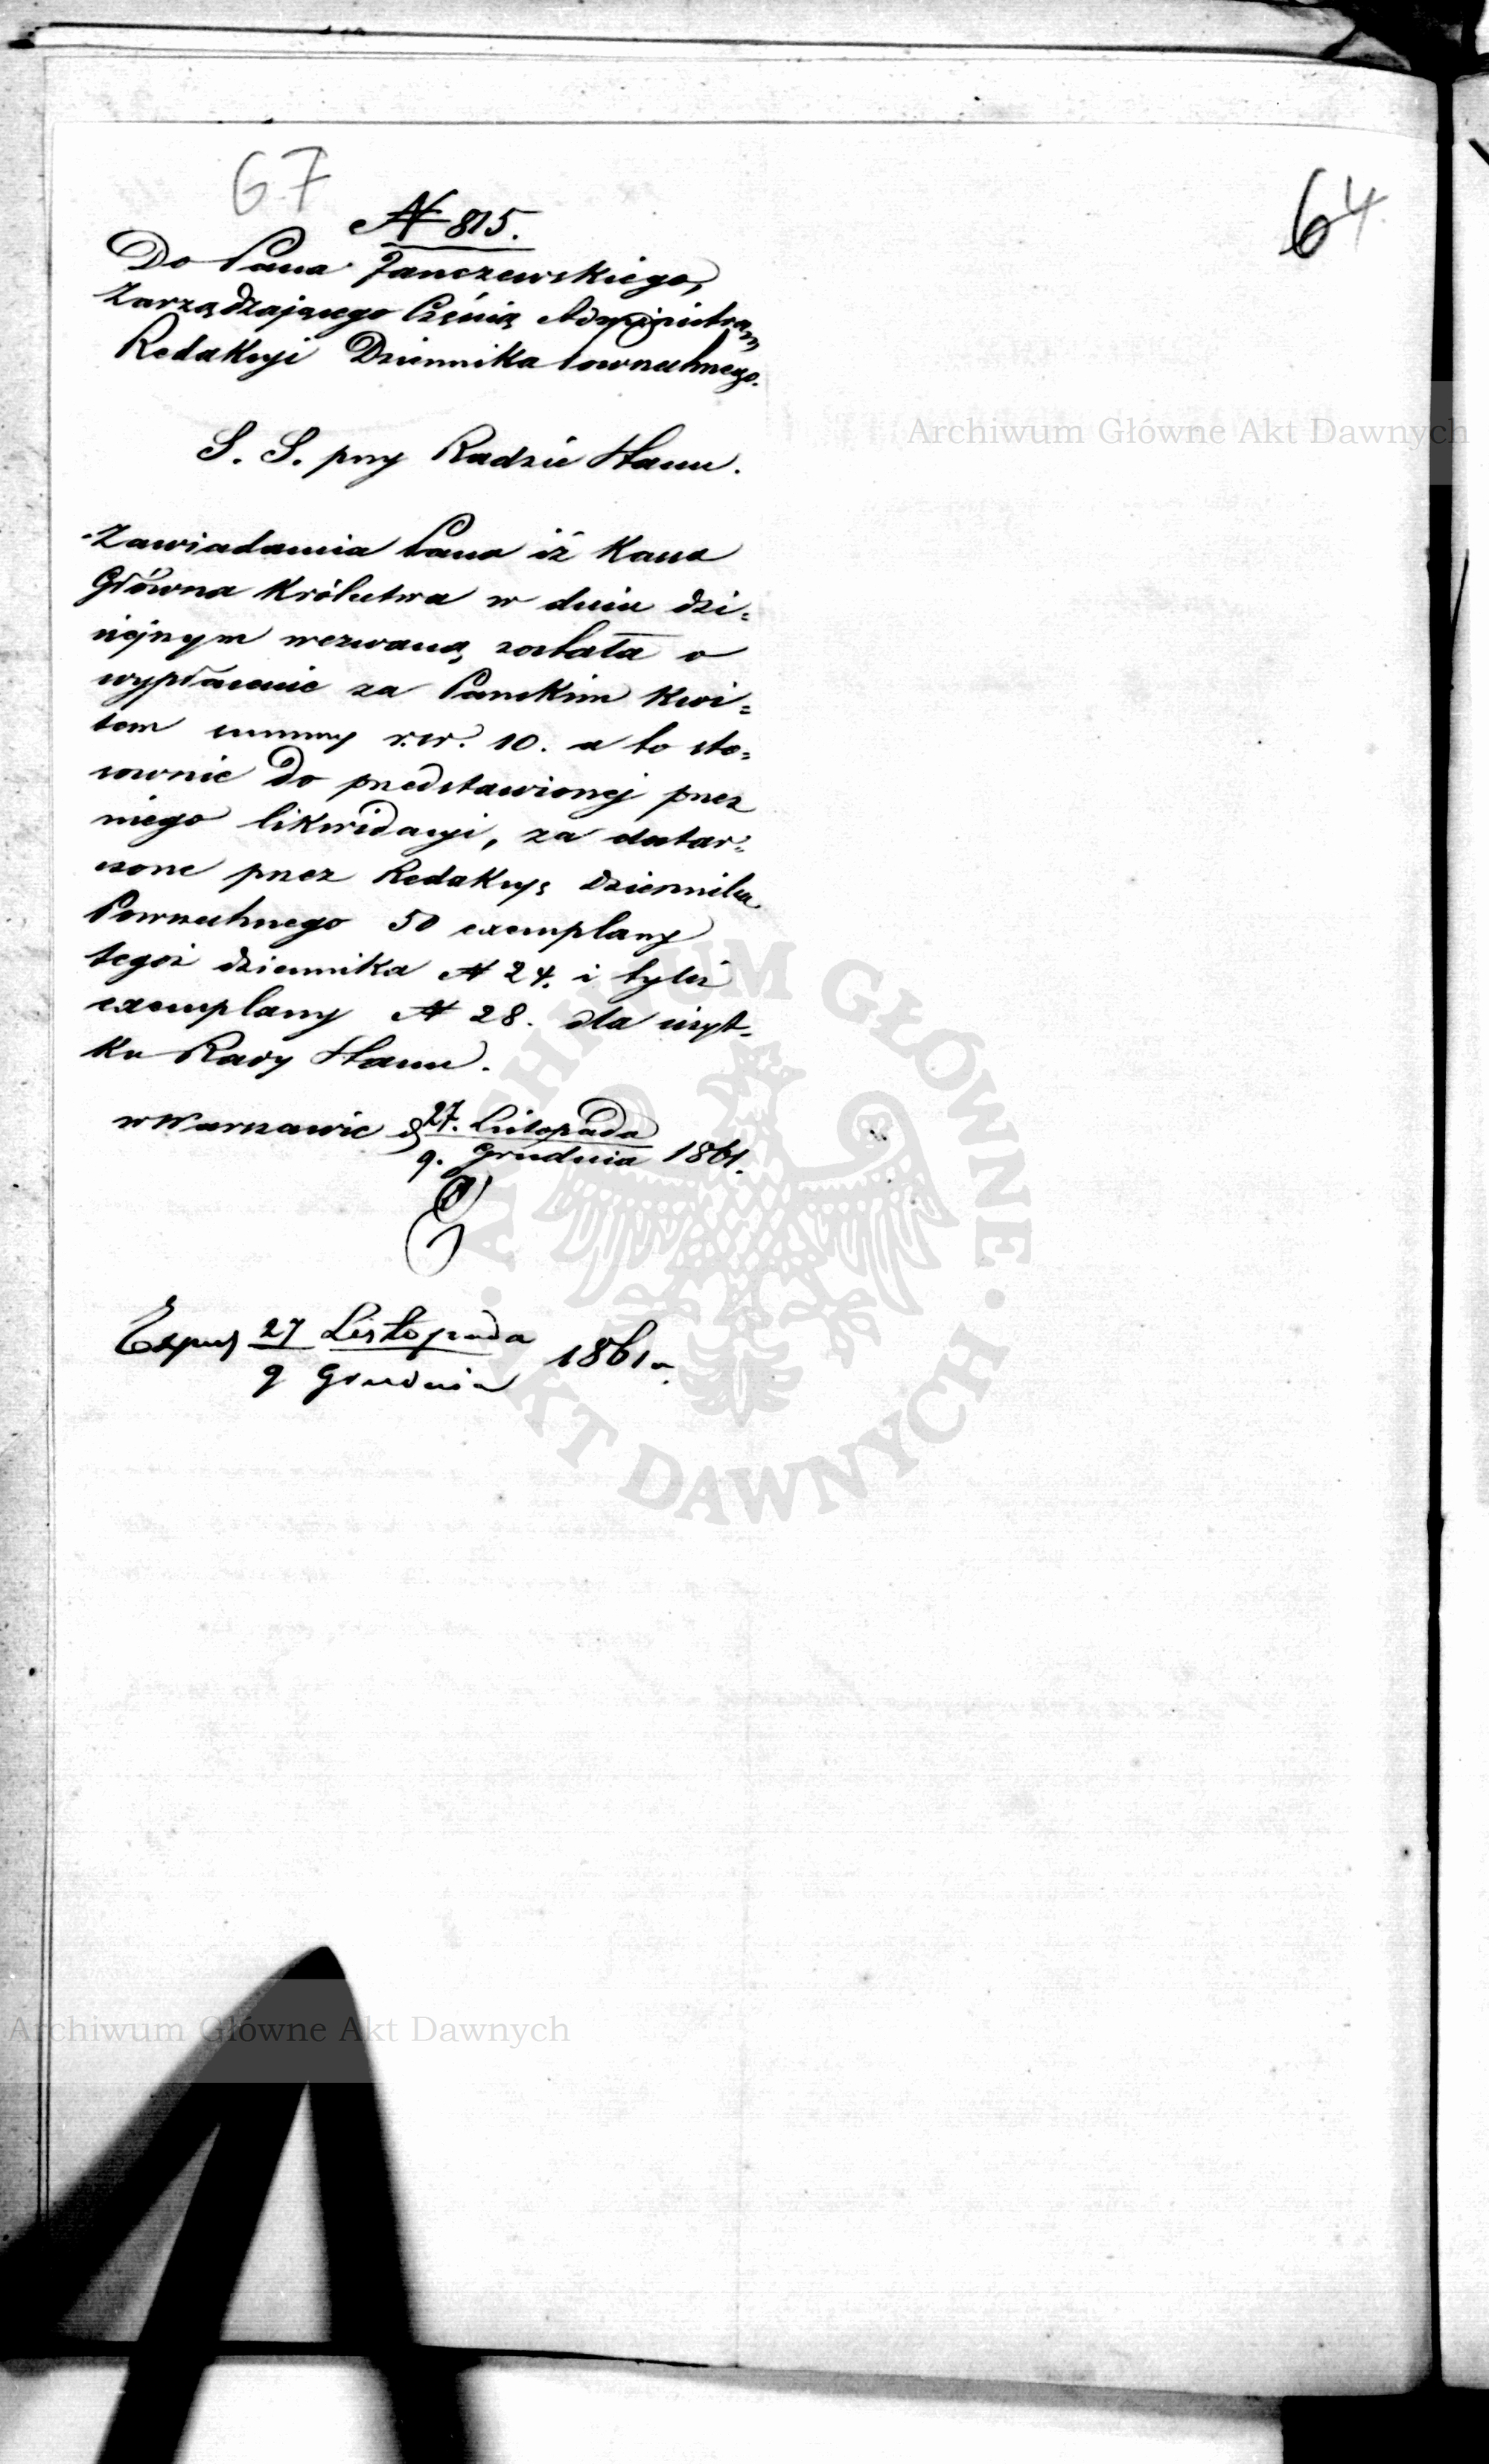 67
64
N 815.
Do Pana Janczewskiego,
Zarządzającego Częścią Administra
Redakcyi Dziennika Powszechnego.
Archiwum Główne Akt Dawnych
S. S. przy Radzie Stanu.
Zawiadamia Pana iż Kassa
Główna Królestwa w dniu dzi=
siejszym wezwaną została o
wypłacenie za Pańskim kwi=
tem summy rsr. 10. a to sto=
sownie do przedstawionej przez
niego likwidacyi, za dostar=
czone przez Redakcyę Dziennika
Powszechnego 50 exemplarzy
tegoż dziennika N 24. i tyleż
exemplarzy N 28. dla użyt=
ku Rady Stanu.
w Warszawie d 27. Listopada
9. Grudnia 1861.
27 Listopada
9 Grudnia 1861 r.
ARCHIWUM GŁÓWNE AKT DAWNYCH
Archiwum Główne Akt Dawnych